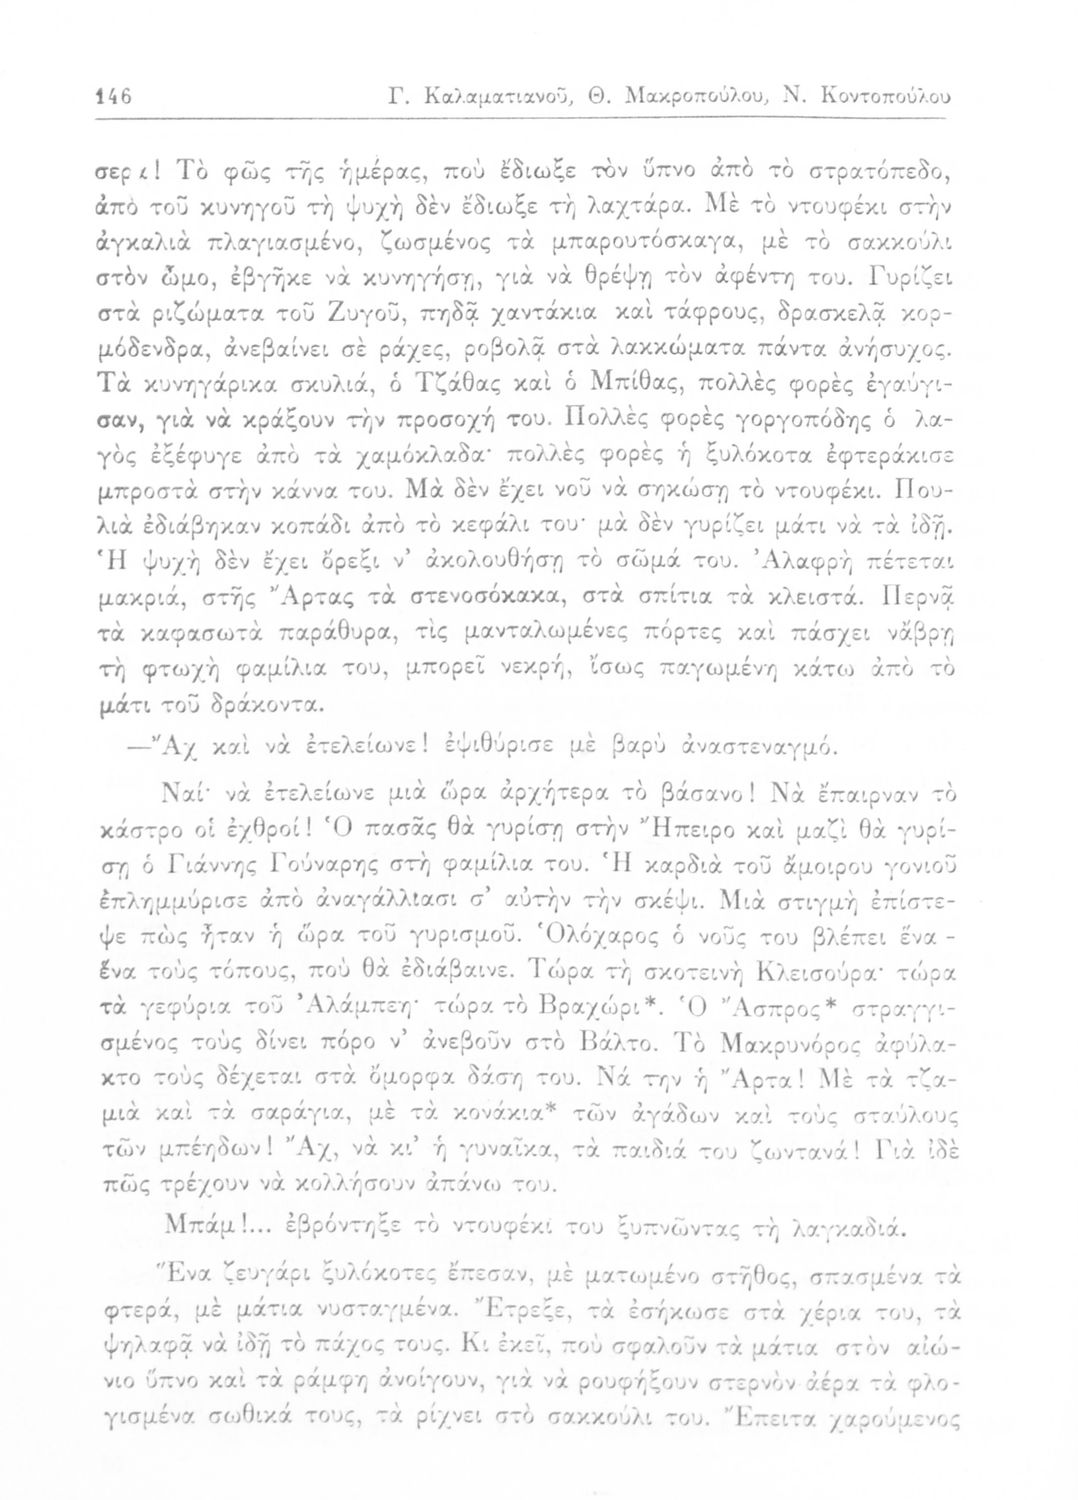 146 Γ. Καλαματιανοῦ, Θ. Μακροπούλου, Ν. Κοντοπούλου
σερα! Τὸ φῶς τῆς ἡμέρας, ποὺ ἔδιωξε τὸν ὕπνο ἀπὸ τὸ στρατόπεδο,
ἀπὸ τοῦ κυνηγοῦ τὴ ψυχὴ δὲν ἔδιωξε τὴ λαχτάρα. Μὲ τὸ ντουφέκι στὴν
ἀγκαλιὰ πλαγιασμένο, ζωσμένος τὰ μπαρουτόσκαγα, μὲ τὸ σακκούλι
στὸν ὦμο, ἐβγῆκε νὰ κυνηγήσῃ, γιὰ νὰ θρέψῃ τὸν ἀφέντη του. Γυρίζει
στὰ ριζώματα τοῦ Ζυγοῦ, πηδᾷ χαντάκια καὶ τάφρους, δρασκελᾷ κορ-
μόδενδρα, ἀνεβαίνει σὲ ράχες, ροβολᾷ στὰ λακκώματα πάντα ἀνήσυχος.
Τὰ κυνηγάρικα σκυλιά, ὁ Τζάθας καὶ ὁ Μπίθας, πολλὲς φορὲς ἐγαύγι-
σαν, γιὰ νὰ κράξουν τὴν προσοχή του. Πολλὲς φορὲς γοργοπόδης ὁ λα-
γὸς ἐξέφυγε ἀπὸ τὰ χαμόκλαδα· πολλὲς φορὲς ἡ ξυλόκοτα ἐφτεράκισε
μπροστὰ στὴν κάννα του. Μὰ δὲν ἔχει νοῦ νὰ σηκώσῃ τὸ ντουφέκι. Που-
λιὰ ἐδιάβηκαν κοπάδι ἀπὸ τὸ κεφάλι του· μὰ δὲν γυρίζει μάτι νὰ τὰ ἰδῇ.
Ἡ ψυχὴ δὲν ἔχει ὄρεξι ν’ ἀκολουθήσῃ τὸ σῶμά του. Ἀλαφρὴ πέτεται
μακριά, στῆς Ἄρτας τὰ στενοσόκακα, στὰ σπίτια τὰ κλειστά. Περνᾷ
τὰ καφασωτὰ παράθυρα, τὶς μανταλωμένες πόρτες καὶ πάσχει νἄβρῃ
τὴ φτωχὴ φαμίλια του, μπορεῖ νεκρή, ἴσως παγωμένη κάτω ἀπὸ τὸ
μάτι τοῦ δράκοντα.
—Ἄχ καὶ νὰ ἐτελείωνε! ἐψιθύρισε μὲ βαρὺ ἀναστεναγμό.
Ναί· νὰ ἐτελείωνε μιὰ ὥρα ἀρχήτερα τὸ βάσανο! Νὰ ἔπαιρναν τὸ
κάστρο οἱ ἐχθροί! Ὁ πασᾶς θὰ γυρίσῃ στὴν Ἤπειρο καὶ μαζὶ θὰ γυρί-
σῃ ὁ Γιάννης Γούναρης στὴ φαμίλια του. Ἡ καρδιὰ τοῦ ἄμοιρου γονιοῦ
ἐπλημμύρισε ἀπὸ ἀναγάλλιασι σ’ αὐτὴν τὴν σκέψι. Μιὰ στιγμὴ ἐπίστε-
ψε πὼς ἦταν ἡ ὥρα τοῦ γυρισμοῦ. Ὁλόχαρος ὁ νοῦς του βλέπει ἕνα -
ἕνα τοὺς τόπους, ποὺ θὰ ἐδιάβαινε. Τώρα τὴ σκοτεινὴ Κλεισούρα· τώρα
τὰ γεφύρια τοῦ Ἀλάμπεη· τώρα τὸ Βραχώρι*. Ὁ Ἄσπρος* στραγγι-
σμένος τοὺς δίνει πόρο ν’ ἀνεβοῦν στὸ Βάλτο. Τὸ Μακρυνόρος ἀφύλα-
κτο τοὺς δέχεται στὰ ὄμορφα δάση του. Νά την ἡ Ἄρτα! Μὲ τὰ τζα-
μιὰ καὶ τὰ σαράγια, μὲ τὰ κονάκια* τῶν ἀγάδων καὶ τοὺς σταύλους
τῶν μπέηδων! Ἄχ, νὰ κι’ ἡ γυναῖκα, τὰ παιδιά του ζωντανά! Γιὰ ἰδὲ
πῶς τρέχουν νὰ κολλήσουν ἀπάνω του.
Μπάμ!... ἐβρόντηξε τὸ ντουφέκί του ξυπνῶντας τὴ λαγκαδιά.
Ἕνα ζευγάρι ξυλόκοτες ἔπεσαν, μὲ ματωμένο στῆθος, σπασμένα τὰ
φτερά, μὲ μάτια νυσταγμένα. Ἔτρεξε, τὰ ἐσήκωσε στὰ χέρια του, τὰ
ψηλαφᾷ νὰ ἰδῇ τὸ πάχος τους. Κι ἐκεῖ, ποὺ σφαλοῦν τὰ μάτια στὸν αἰώ-
νιο ὕπνο καὶ τὰ ράμφη ἀνοίγουν, γιὰ νὰ ρουφήξουν στερνὸν ἀέρα τὰ φλο-
γισμένα σωθικά τους, τὰ ρίχνει στὸ σακκούλι του. Ἔπειτα χαρούμενος